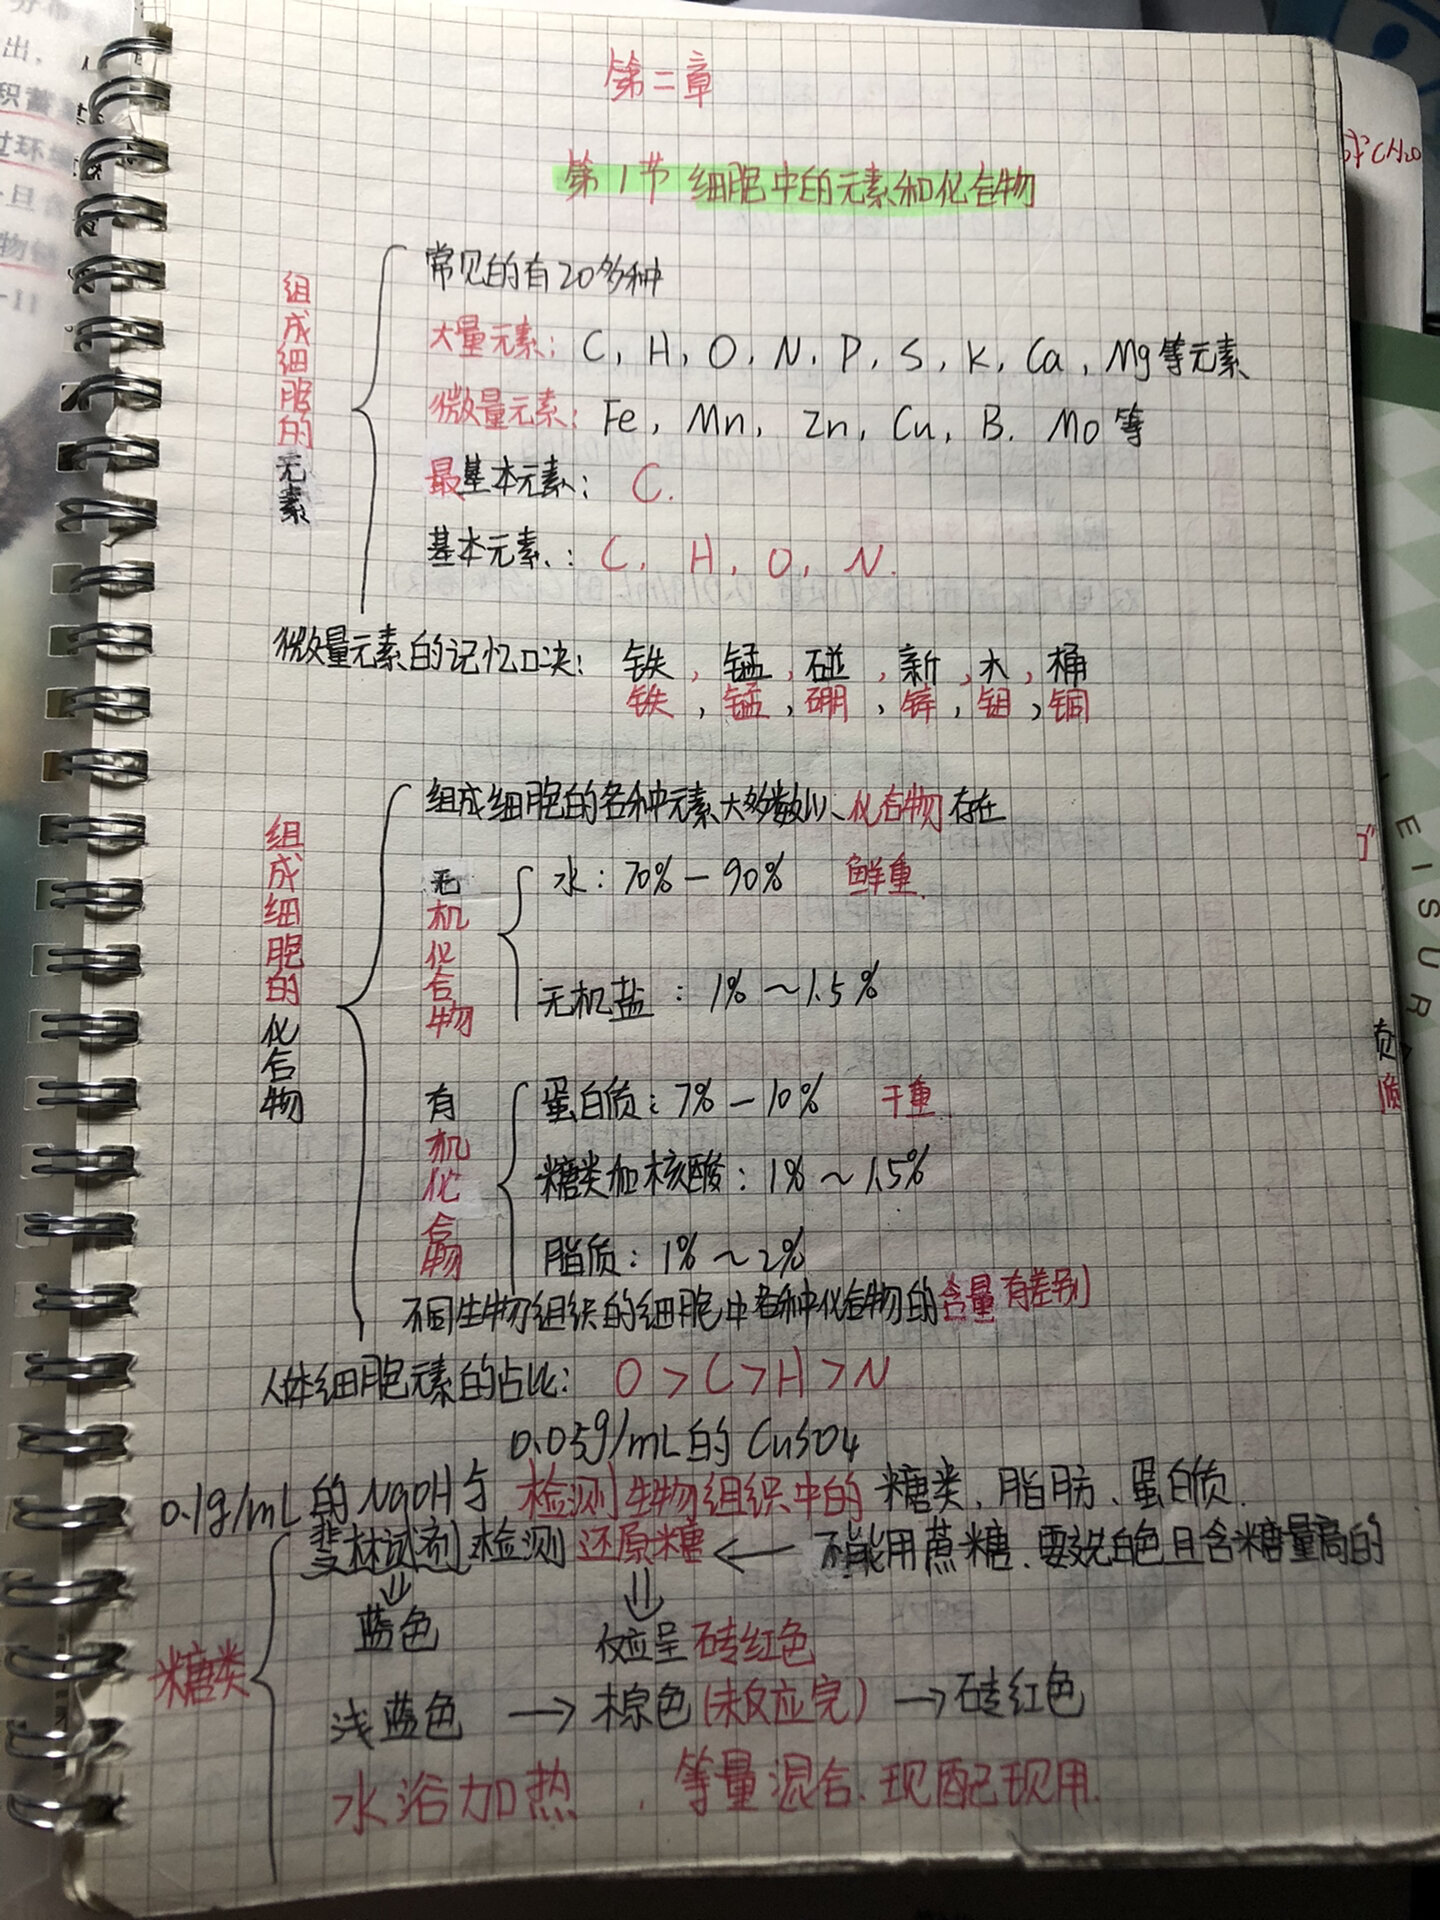 第二章
第1节 细胞中的元素和化合物
组成细胞的元素
常见的有20多种
大量元素：C, H, O, N, P, S, K, Ca, Mg等元素
微量元素：Fe, Mn, Zn, Cu, B. Mo等
最基本元素：C.
基本元素：C, H, O, N.
微量元素的记忆口决：铁, 锰, 碰, 新, 木, 桶
铁, 锰, 硼, 锌, 钼, 铜
组成细胞的化合物
组成细胞的各种元素大多数以化合物存在
无机化合物
水：70%—90% 鲜重
无机盐：1%～1.5%
有机化合物
蛋白质：7%—10% 干重
糖类和核酸：1%～1.5%
脂质：1%～2%
不同生物组织的细胞中各种化合物的含量有差别
人体细胞元素的占比：O>C>H>N
0.05g/mL的CuSO4
0.1g/mL的NaOH与 检测生物组织中的 糖类、脂肪、蛋白质.
糖类
斐林试剂 检测 还原糖 ← 不能用蔗糖.要选白色且含糖量高的
⇓ ⇓
蓝色 反应呈砖红色
浅蓝色 → 棕色(未反应完) → 砖红色
水浴加热, 等量混合.现配现用.
出,
积蓄
过环境
一旦
物链
-11
CH2O
EISUR
质